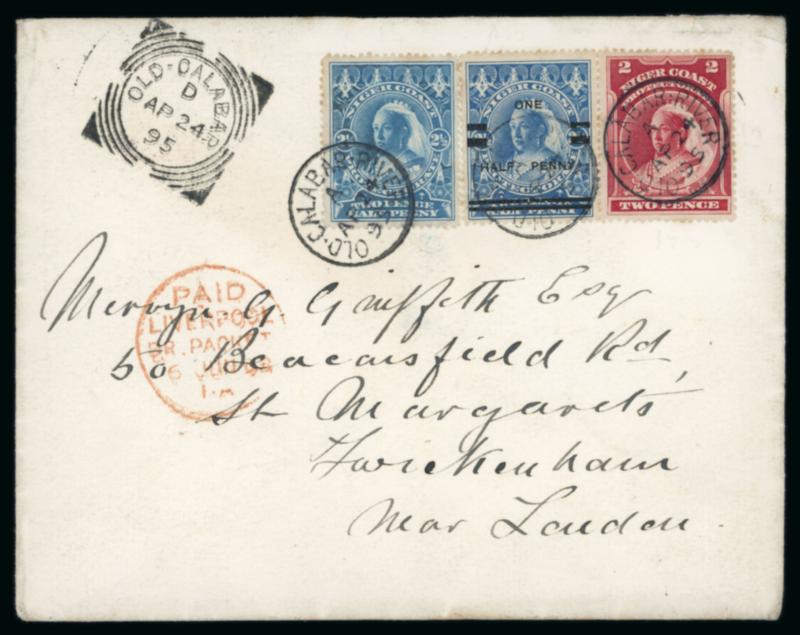 OLD-CALABAR
D
AP 24
95
NIGER COAST
PROTECTORATE
2½ 2½
TWO PENCE
HALF PENNY
NIGER COAST
ONE
HALF PENNY
HALF PENNY
2 2
NIGER COAST
PROTECTORATE
TWO PENCE
OLD-CALABAR-RIVER
A
AP 24
95
OLD
CALABAR-RIVER
A
AP 24
95
PAID
LIVERPOOL
BR. PACKET
1.A
Mervyn G. Griffith Esq
50 Beaconsfield Rd,
St Margarets
Twickenham
Near London.